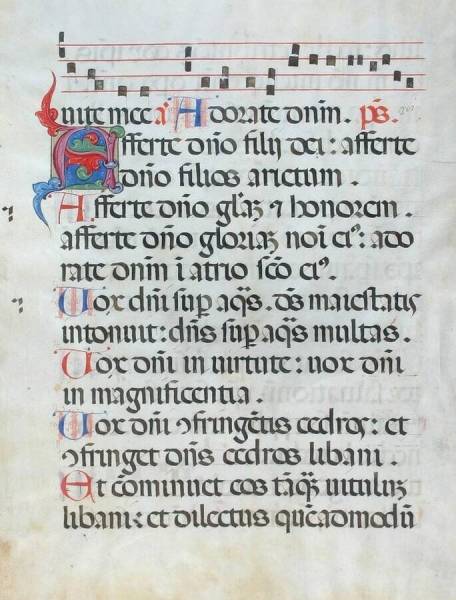 uite mee aꝰ Adorate dn̄m. pš.
Afferte dn̄o filij dei : afferte
dn̄o filios arietum.
Afferte dn̄o gl̄aʒ ⁊ honorem.
afferte dn̄o gloriaʒ noī eiꝰ: ado
rate dn̄m ī atrio sc̄o eiꝰ.
Uox dn̄i suꝑ aq̄s. ds̄ maiestatis
intonuit: dn̄s suꝑ aq̄s multas.
Uox dn̄i in uirtute: uox dn̄i
in magnificentia.
Uox dn̄i ꝯfringētis cedros: et
ꝯfringet dn̄s cedros libani.
Et cōminuet eos tāqʒ uituluʒ
libani: et dilectus quēadmodū